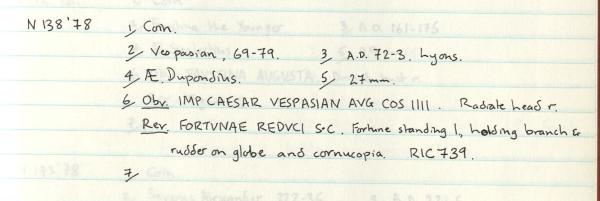 N 138'78 1, Coin.
2, Vespasian, 69-79. 3, A.D. 72-3. Lyons.
4, Æ. Dupondius. 5, 27mm.
6, Obv. IMP CAESAR VESPASIAN AVG COS IIII. Radiate head r.
Rev. FORTVNAE REDVCI S·C. Fortune standing l, holding branch &
rudder on globe and cornucopia. RIC 739.
7,